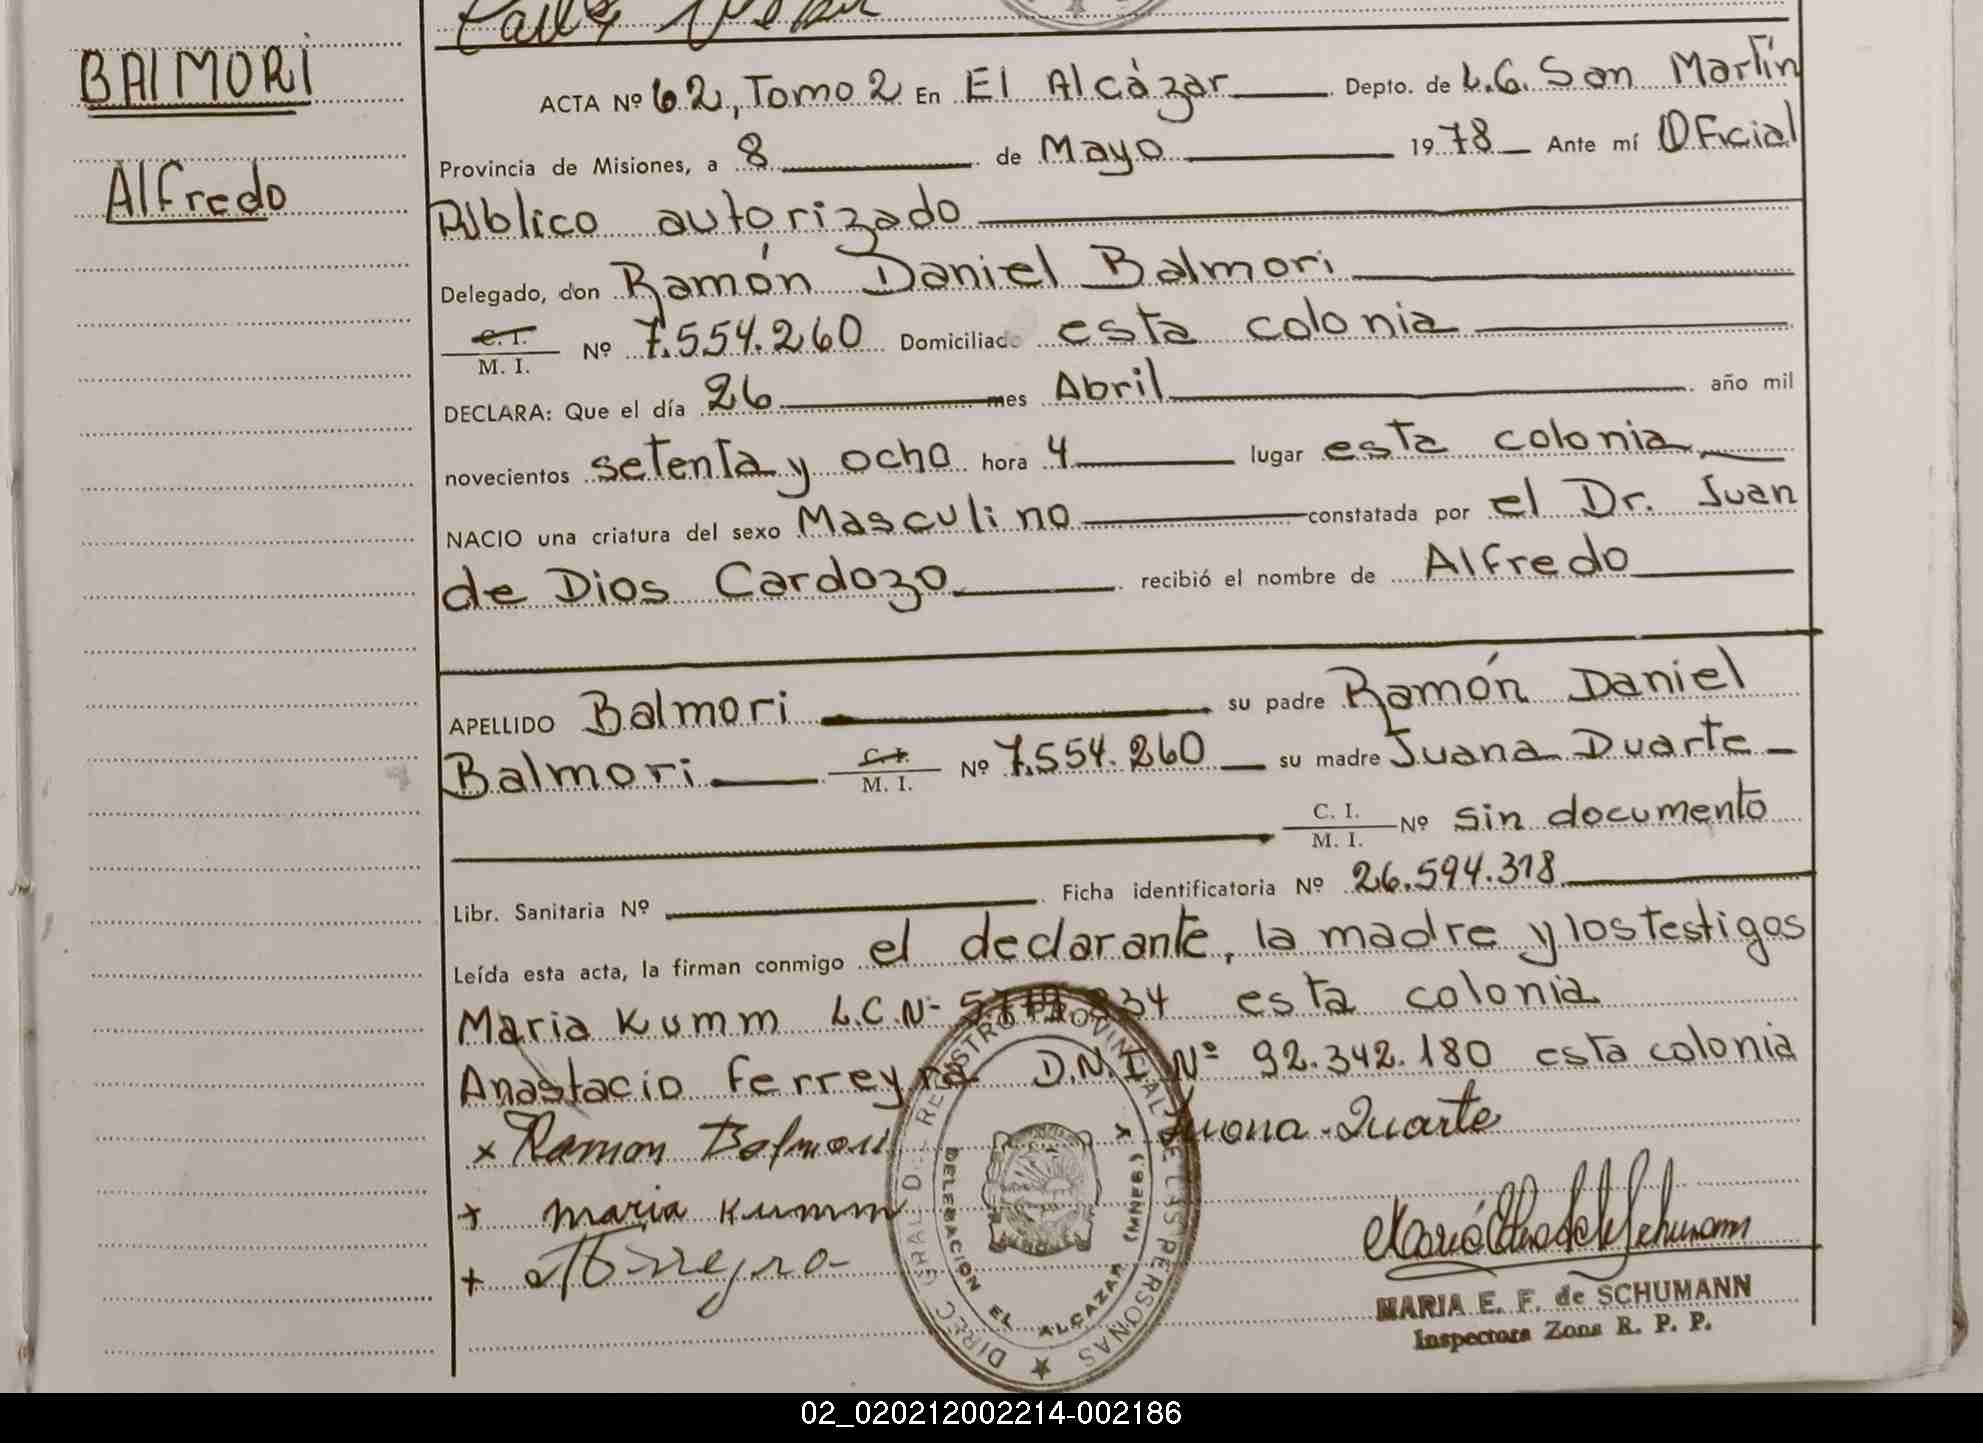 BALMORI
Alfredo
ACTA Nº 62, Tomo 2 En El Alcázar Depto. de L.G. San Martín
Provincia de Misiones, a 8 de Mayo 1978 Ante mí Oficial
Público autorizado
Delegado, don Ramón Daniel Balmori
C. I.
M. I. Nº 7.554.260 Domiciliado esta colonia
DECLARA: Que el día 26 mes Abril año mil
novecientos setenta y ocho hora 4 lugar esta colonia
NACIO una criatura del sexo Masculino constatada por el Dr. Juan
de Dios Cardozo recibió el nombre de Alfredo
APELLIDO Balmori su padre Ramón Daniel
Balmori C. I. M. I. Nº 7.554.260 su madre Juana Duarte
C. I. M. I. Nº sin documento
Libr. Sanitaria Nº Ficha identificatoria Nº 26.594.318
Leída esta acta, la firman conmigo el declarante, la madre y los testigos
Maria Kumm L.C.Nº esta colonia
Anastacio Ferreyra D.N.I Nº 92.342.180 esta colonia
x Ramon Balmori x Juana Duarte
+ maria Kumm
+
DIREC. GRAL. DEL REGISTRO PROVINCIAL DE LAS PERSONAS
DELEGACION EL ALCAZAR (MNES.)
MARIA E. F. de SCHUMANN
Inspectora Zona R. P. P.
02_020212002214-002186